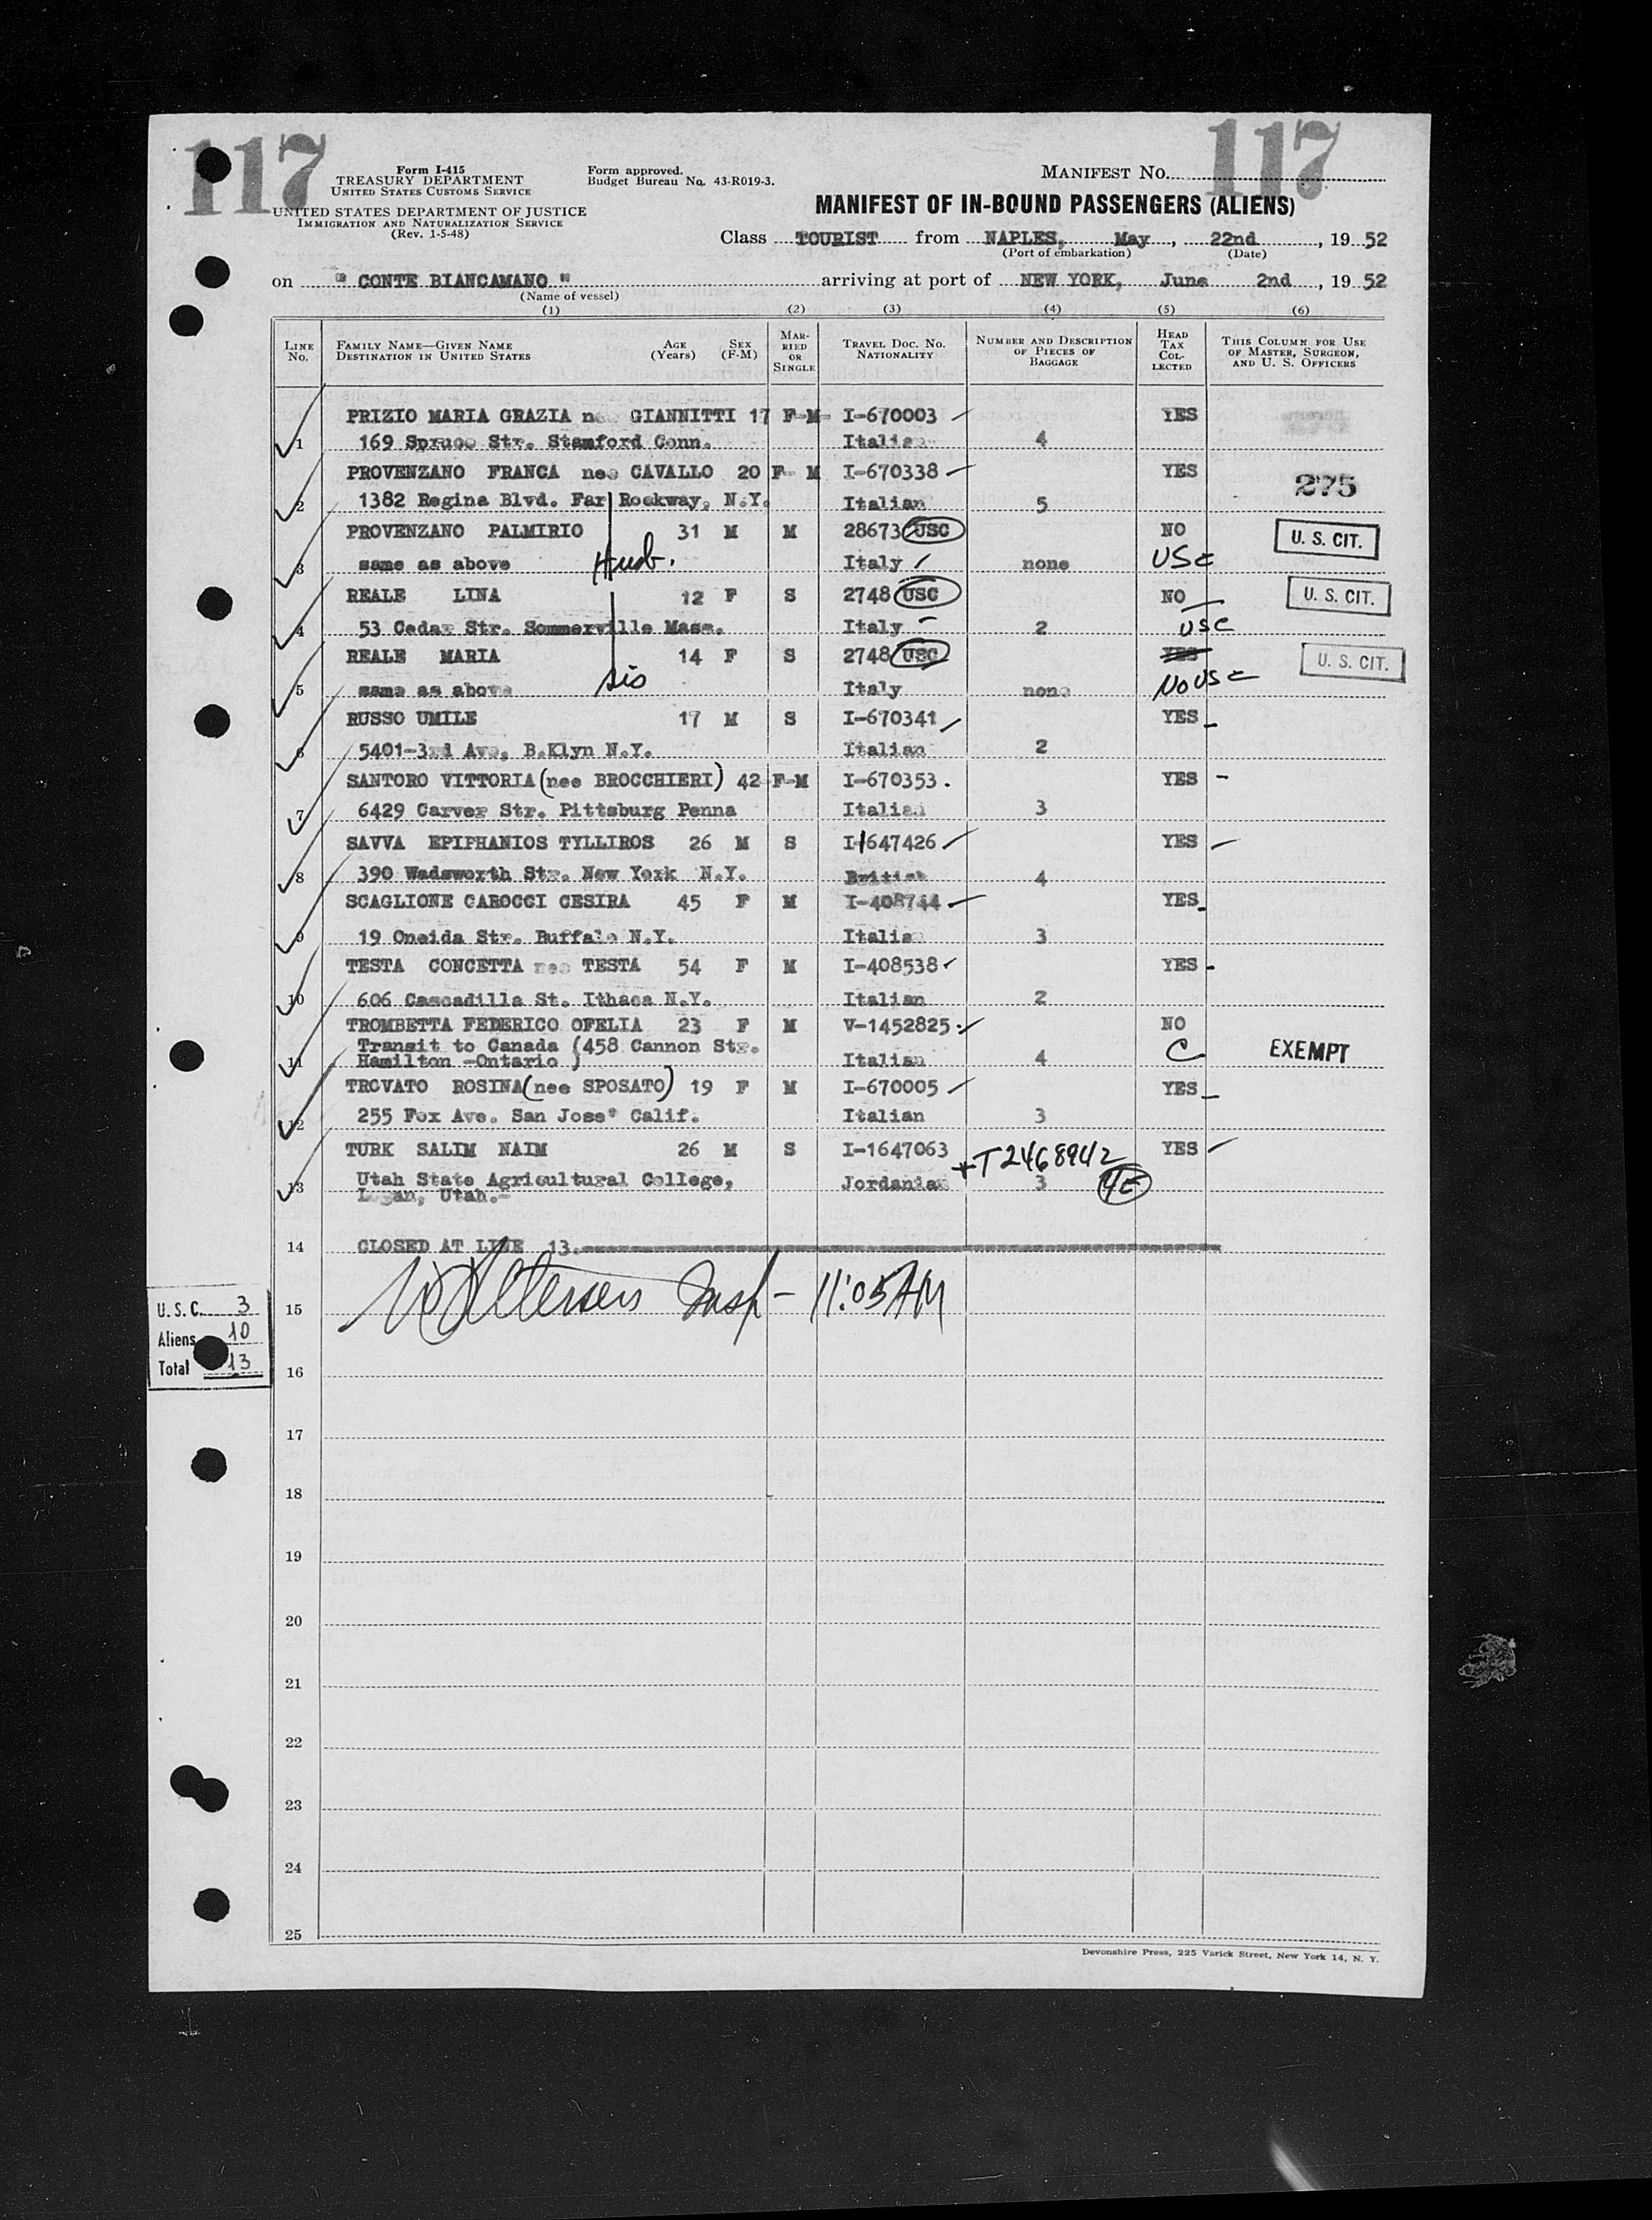 117 117
Form I-415
TREASURY DEPARTMENT
UNITED STATES CUSTOMS SERVICE
Form approved.
Budget Bureau No. 43-R019-3.
MANIFEST No.
UNITED STATES DEPARTMENT OF JUSTICE
IMMIGRATION AND NATURALIZATION SERVICE
(Rev. 1-5-48)
MANIFEST OF IN-BOUND PASSENGERS (ALIENS)
Class TOURIST from NAPLES, May, 22nd, 19 52
(Port of embarkation) (Date)
on " CONTE BIANCAMANO " arriving at port of NEW YORK, June 2nd, 19 52
(Name of vessel)
(1) (2) (3) (4) (5) (6)
LINE No. FAMILY NAME—GIVEN NAME DESTINATION IN UNITED STATES AGE (Years) SEX (F-M) MARRIED OR SINGLE TRAVEL DOC. NO. NATIONALITY NUMBER AND DESCRIPTION OF PIECES OF BAGGAGE HEAD TAX COLLECTED THIS COLUMN FOR USE OF MASTER, SURGEON, AND U. S. OFFICERS
PRIZIO MARIA GRAZIA nee GIANNITTI 17 F-M- I-670003 YES
1 169 Spruce Str. Stamford Conn. Italian 4
PROVENZANO FRANCA nee CAVALLO 20 F- M I-670338 YES 275
2 1382 Regina Blvd. Far Rockway, N.Y. Italian 5
PROVENZANO PALMIRIO 31 M M 28673 USC NO U. S. CIT.
3 same as above Husb. Italy none USC
REALE LINA 12 F S 2748 USC NO U. S. CIT.
4 53 Cedar Str. Sommerville Mass. Italy 2 USC
REALE MARIA 14 F S 2748 USC YES U. S. CIT.
5 same as above sis Italy none NO USC
RUSSO UMILE 17 M S I-670341 YES
6 5401-3rd Ave, B.Klyn N.Y. Italian 2
SANTORO VITTORIA (nee BROCCHIERI) 42 F-M I-670353. YES
7 6429 Carver Str. Pittsburg Penna Italian 3
SAVVA EPIPHANIOS TYLLIROS 26 M S I-1647426 YES
8 390 Wadsworth Str. New York N.Y. British 4
SCAGLIONE CAROCCI CESIRA 45 F M I-408744 YES
9 19 Oneida Str. Buffalo N.Y. Italian 3
TESTA CONCETTA nee TESTA 54 F M I-408538 YES
10 606 Cascadilla St. Ithaca N.Y. Italian 2
TROMBETTA FEDERICO OFELIA 23 F M V-1452825. NO
Transit to Canada (458 Cannon Str. C EXEMPT
11 Hamilton -Ontario ) Italian 4
TROVATO ROSINA (nee SPOSATO) 19 F M I-670005 YES
12 255 Fox Ave. San Jose' Calif. Italian 3
TURK SALIM NAIM 26 M S I-1647063 +T2468942 YES
13 Utah State Agricultural College, Jordanian 3 4E
Logan, Utah.-
14 CLOSED AT LINE 13.
15 Insp- 11:05 AM
U. S. C. 3
Aliens 10
Total 13
16
17
18
19
20
21
22
23
24
25
Devonshire Press, 225 Varick Street, New York 14, N. Y.